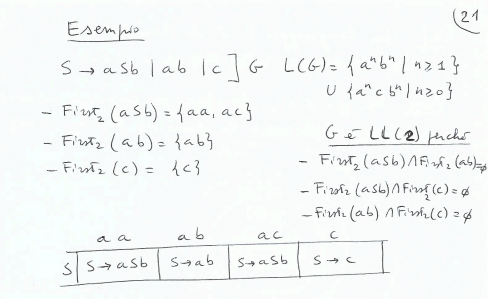 (21
Esempio
S → aSb | ab | c ] G L(G) = { aⁿbⁿ | n ≥ 1 }
∪ { aⁿcbⁿ | n ≥ 0 }
- First₂ (aSb) = {aa, ac}
- First₂ (ab) = {ab}
- First₂ (c) = {c}
G è LL(2) perché
- First₂ (aSb) ∩ First₂ (ab) = ∅
- First₂ (aSb) ∩ First₂ (c) = ∅
- First₂ (ab) ∩ First₂ (c) = ∅
aa ab ac c
S S→aSb S→ab S→aSb S→c